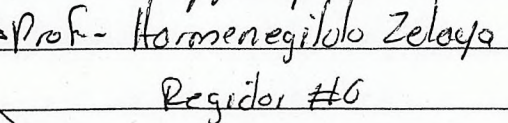 Prof- Hormenegildo Zelaya
Regidor #6